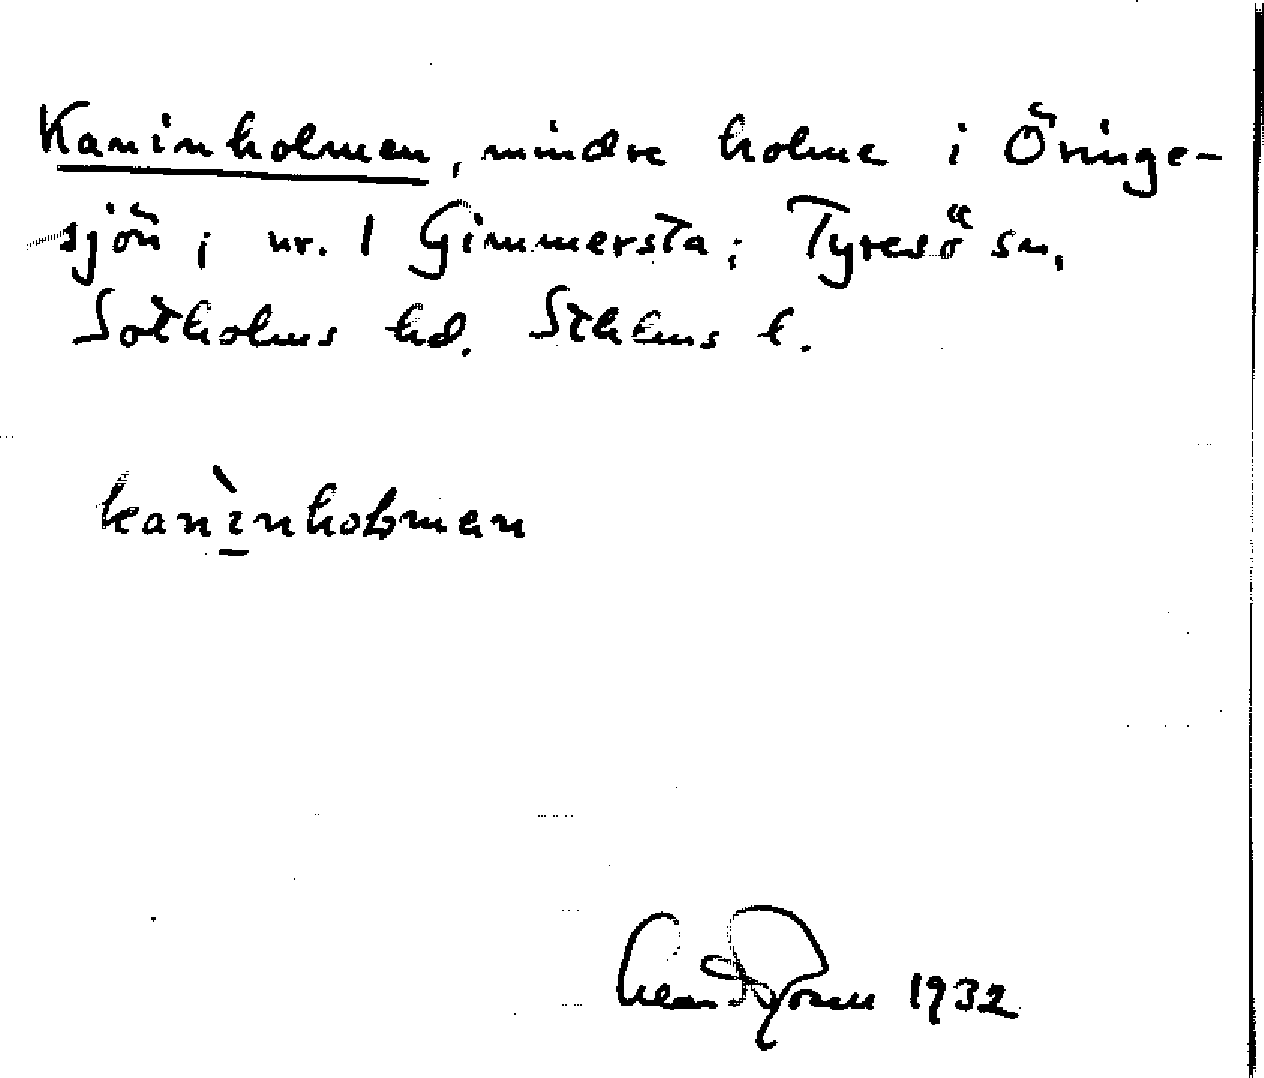 Kaninholmen, mindre holme i Öringe-
sjön i nr. 1 Gimmersta; Tyresö sn,
Sotholms hd. Sthlms l.
kanìnholmen
1932